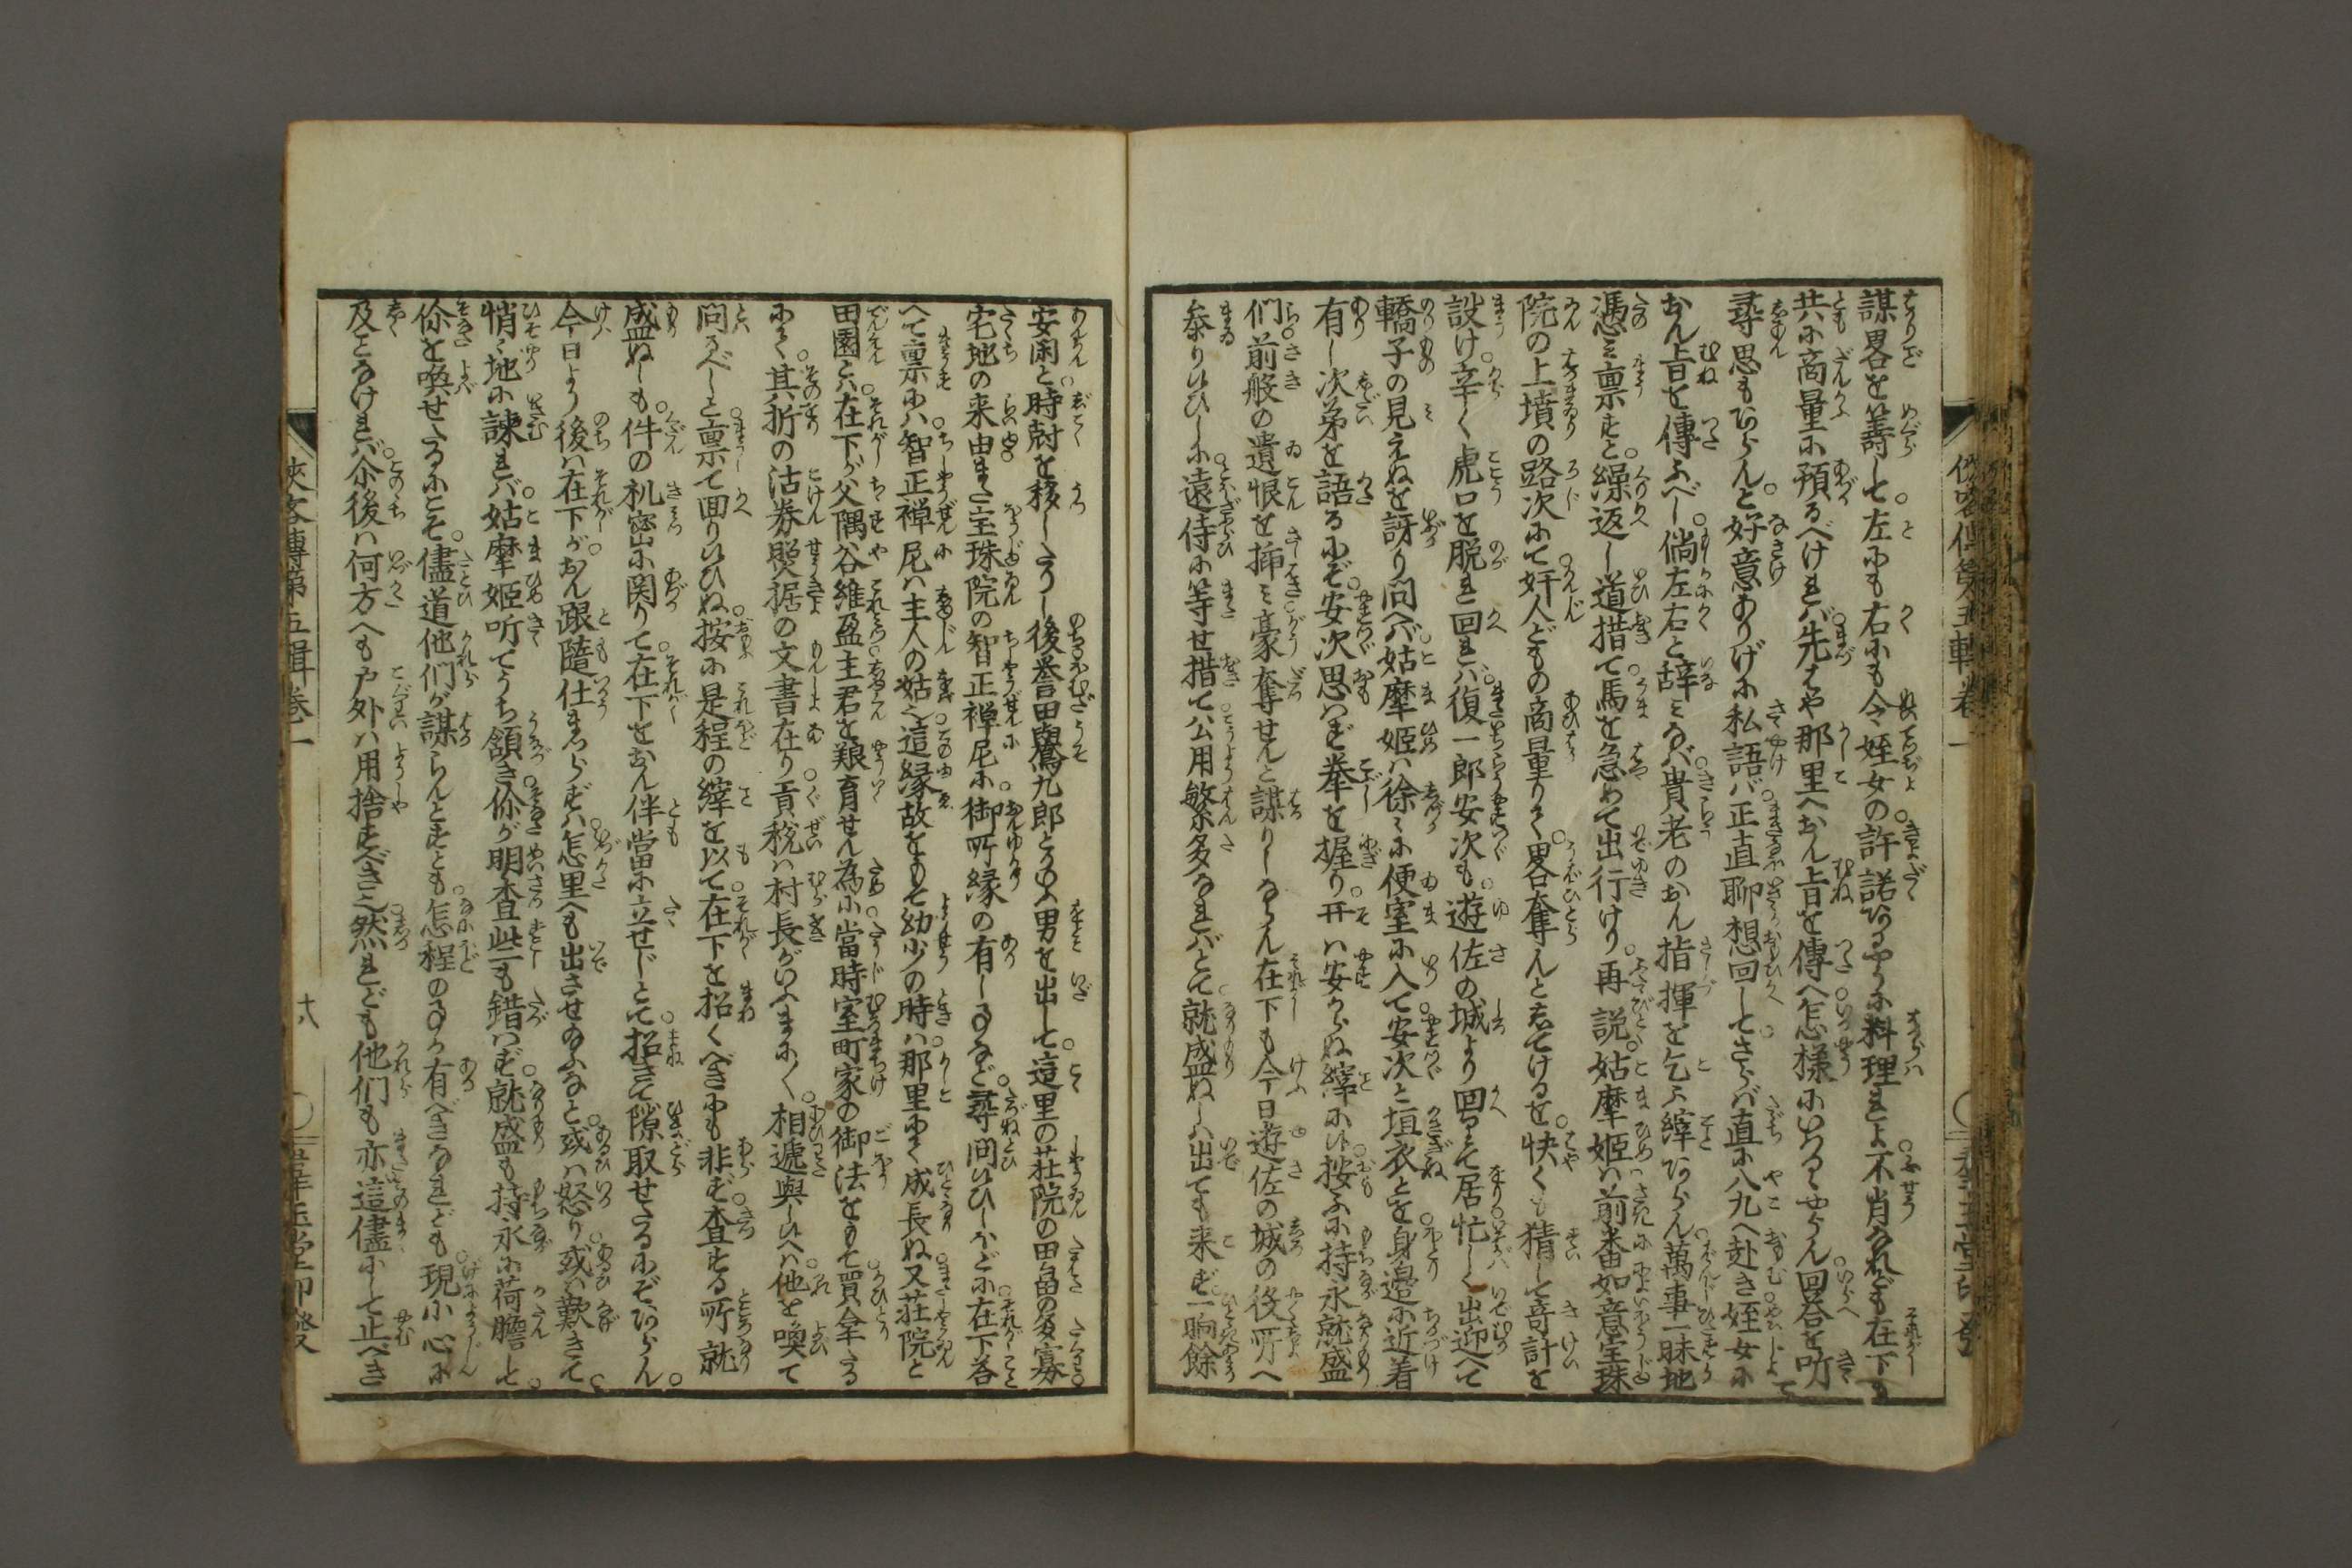 謀畧を籌して。左にも右にも令姪女の。許諾あるやうに料理れよ。不肖なれども在下も
共に商量に預るべけれバ。先はや那里へおん旨を傳へ。怎様にいふるゝやらん。回答を听て
尋思もあらんと。好意ありげに私語バ。正直聊想回して。さらバ直に八九へ赴き。姪女に
おん旨を傳ふべし。倘左右と辞ミなバ。貴老のおん指揮を乞ふ縡あらん。萬事一昧地
憑ミ稟すと。繰返し道措て。馬を急めて出行けり。再説。姑摩姫ハ前番如意宝珠
院の上墳の路次にて。奸人どもの商量りて。畧奪んとしてけるを。快くも猜して奇計を
設け。辛く虎口を脱れ回れバ。復一郎安次も。遊佐の城より回りて居。忙しく出迎へて
轎子の見えぬを訝り問へバ。姑摩姫ハ徐々に便室に入て。安次と垣衣とを。身邊に近着
有し次第を語るにぞ。安次思ハず拳を握り。开ハ安からぬ縡にハ。按ふに持永就盛
们。前般の遺恨を挿ミ。豪奪せんと謀りしならん。在下も今日遊佐の城の役所へ
参りいひしに。遠侍に等せ措て。公用繁多なれバとて。就盛ぬしハ出ても来ず。一晌餘
安閑と。時尅を移したりし後。誉田鶯九郎といふ男を出して。這里の荘院の田畠の多寡。
宅地の来由。また宝珠院の智正禅尼に。御所縁の有し事など。尋問いひしほどに。在下答
へて稟にハ。智正禅尼ハ主人の姑也。這縁故をもて幼少の時ハ。那里にて成長ぬ。又荘院と
田園とハ。在下が父隅谷維盈。主君を艱育せん為に。當時室町家の御法をもて。買拿たる
にて。其折の沽券照据の文書在り。貢税ハ村長がいふまにく。相遞與しいへハ。他を喚て
問るべしと。稟て回りいひぬ。按に是程の縡を以て。在下を招くべきにも非ず。査する所就
盛ぬしも。件の机密に関りて。在下をおん伴當に立せじとて。招きて隙取せたるにぞあらん。
今日より後ハ在下が。おん跟隨仕まつらずハ。怎里へも出させ給ふなと。或ハ怒り。或ハ歎きて。
悄々地に諫れバ。姑摩姫听てうち頷き。你が明査些も錯ハず。就盛も持永に荷膽して。
你を喚せたるにこそ。儘道他们が謀らんとすとも。怎程の事か有べきなれども。現に心に
及となけれバ。尒後ハ何方へも戸外ハ用捨すべき也。然れども他们も亦這儘にして止べき
侠客傳第五輯巻一
十八